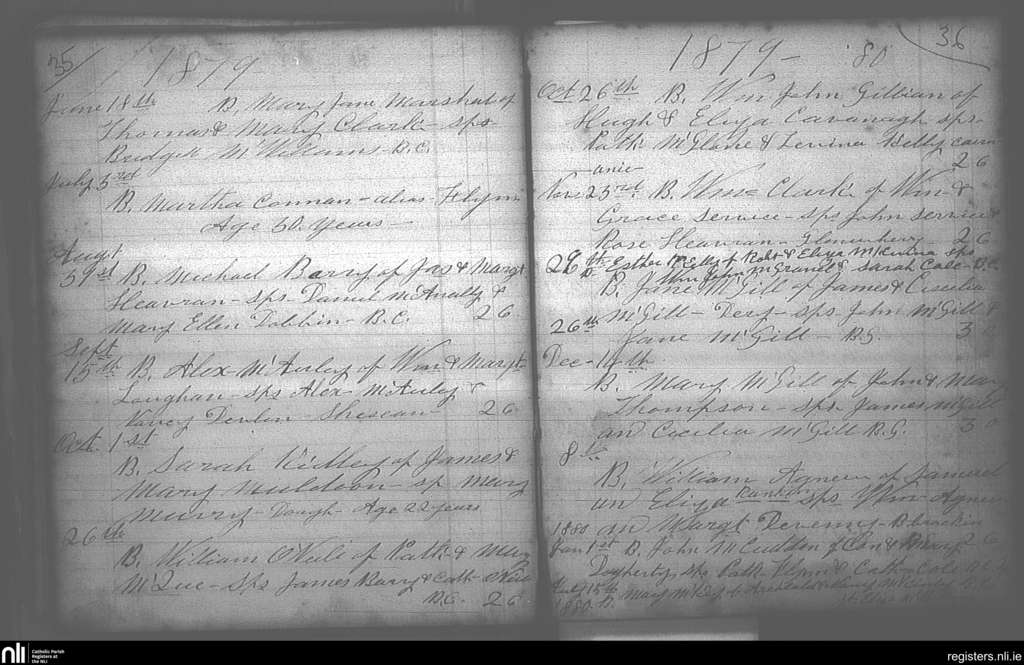 35
1879
June 18th B. Mary Jane Marshal of
Thomas & Mary Clark - sps
Bridgett McWilliams - B.C.
July 3rd
B. Martha Connan - alias - Flynn
Age 50 years -
Augt
31st B. Michael Barry of Jas & Margt
Heavran - sps Daniel McAnally &
Mary Ellen Dobbin - B.C. 26
Sept
15th B. Alex McAuley of Wm & Margt
Loughan - sps Alex McAuley &
Nancy Devlin - 26
Oct 1st
B. Sarah Kelley of James &
Mary Muldoon - sp Mary
Murry - Dough - Age 22 years
26th
B. William O'Neile of Patk & Mary
McQue - sps James Barry & Cath O'Neile
B.C. 26
36
1879 - 80
Oct 26th B. Wm John Gillian of
Hugh & Eliza Cavanagh sps
Patk McGlone & Levina Kelly
26
Nov 23rd B. Wm Clark of Wm &
Grace Service - sps John Service &
Rose Heavran - Glenwherry - 26
26th B. Esther of Robt & Eliza sps
Wm John & Sarah Cole - B.C.
B. Jane McGill of James & Cecelia
McGill - Dery - sps John McGill &
26th Jane McGill - B.G. 3
Dec - 14th
B. Mary McGill of John & Mary
Thompson - sps James McGill
an Cecilia McGill B.G. 3
8th
B. William Agnew of Samuel
an Eliza Rankin sps Wm Agnew
1880 an Margt Devenny - Bbracken
Jan 1st B. John of Con & Mary 26
Dogherty sps Patk & Cath Cole
15th B. Mary of Archibald &
1880
nli
Catholic Parish
Registers at
the NLI
registers.nli.ie